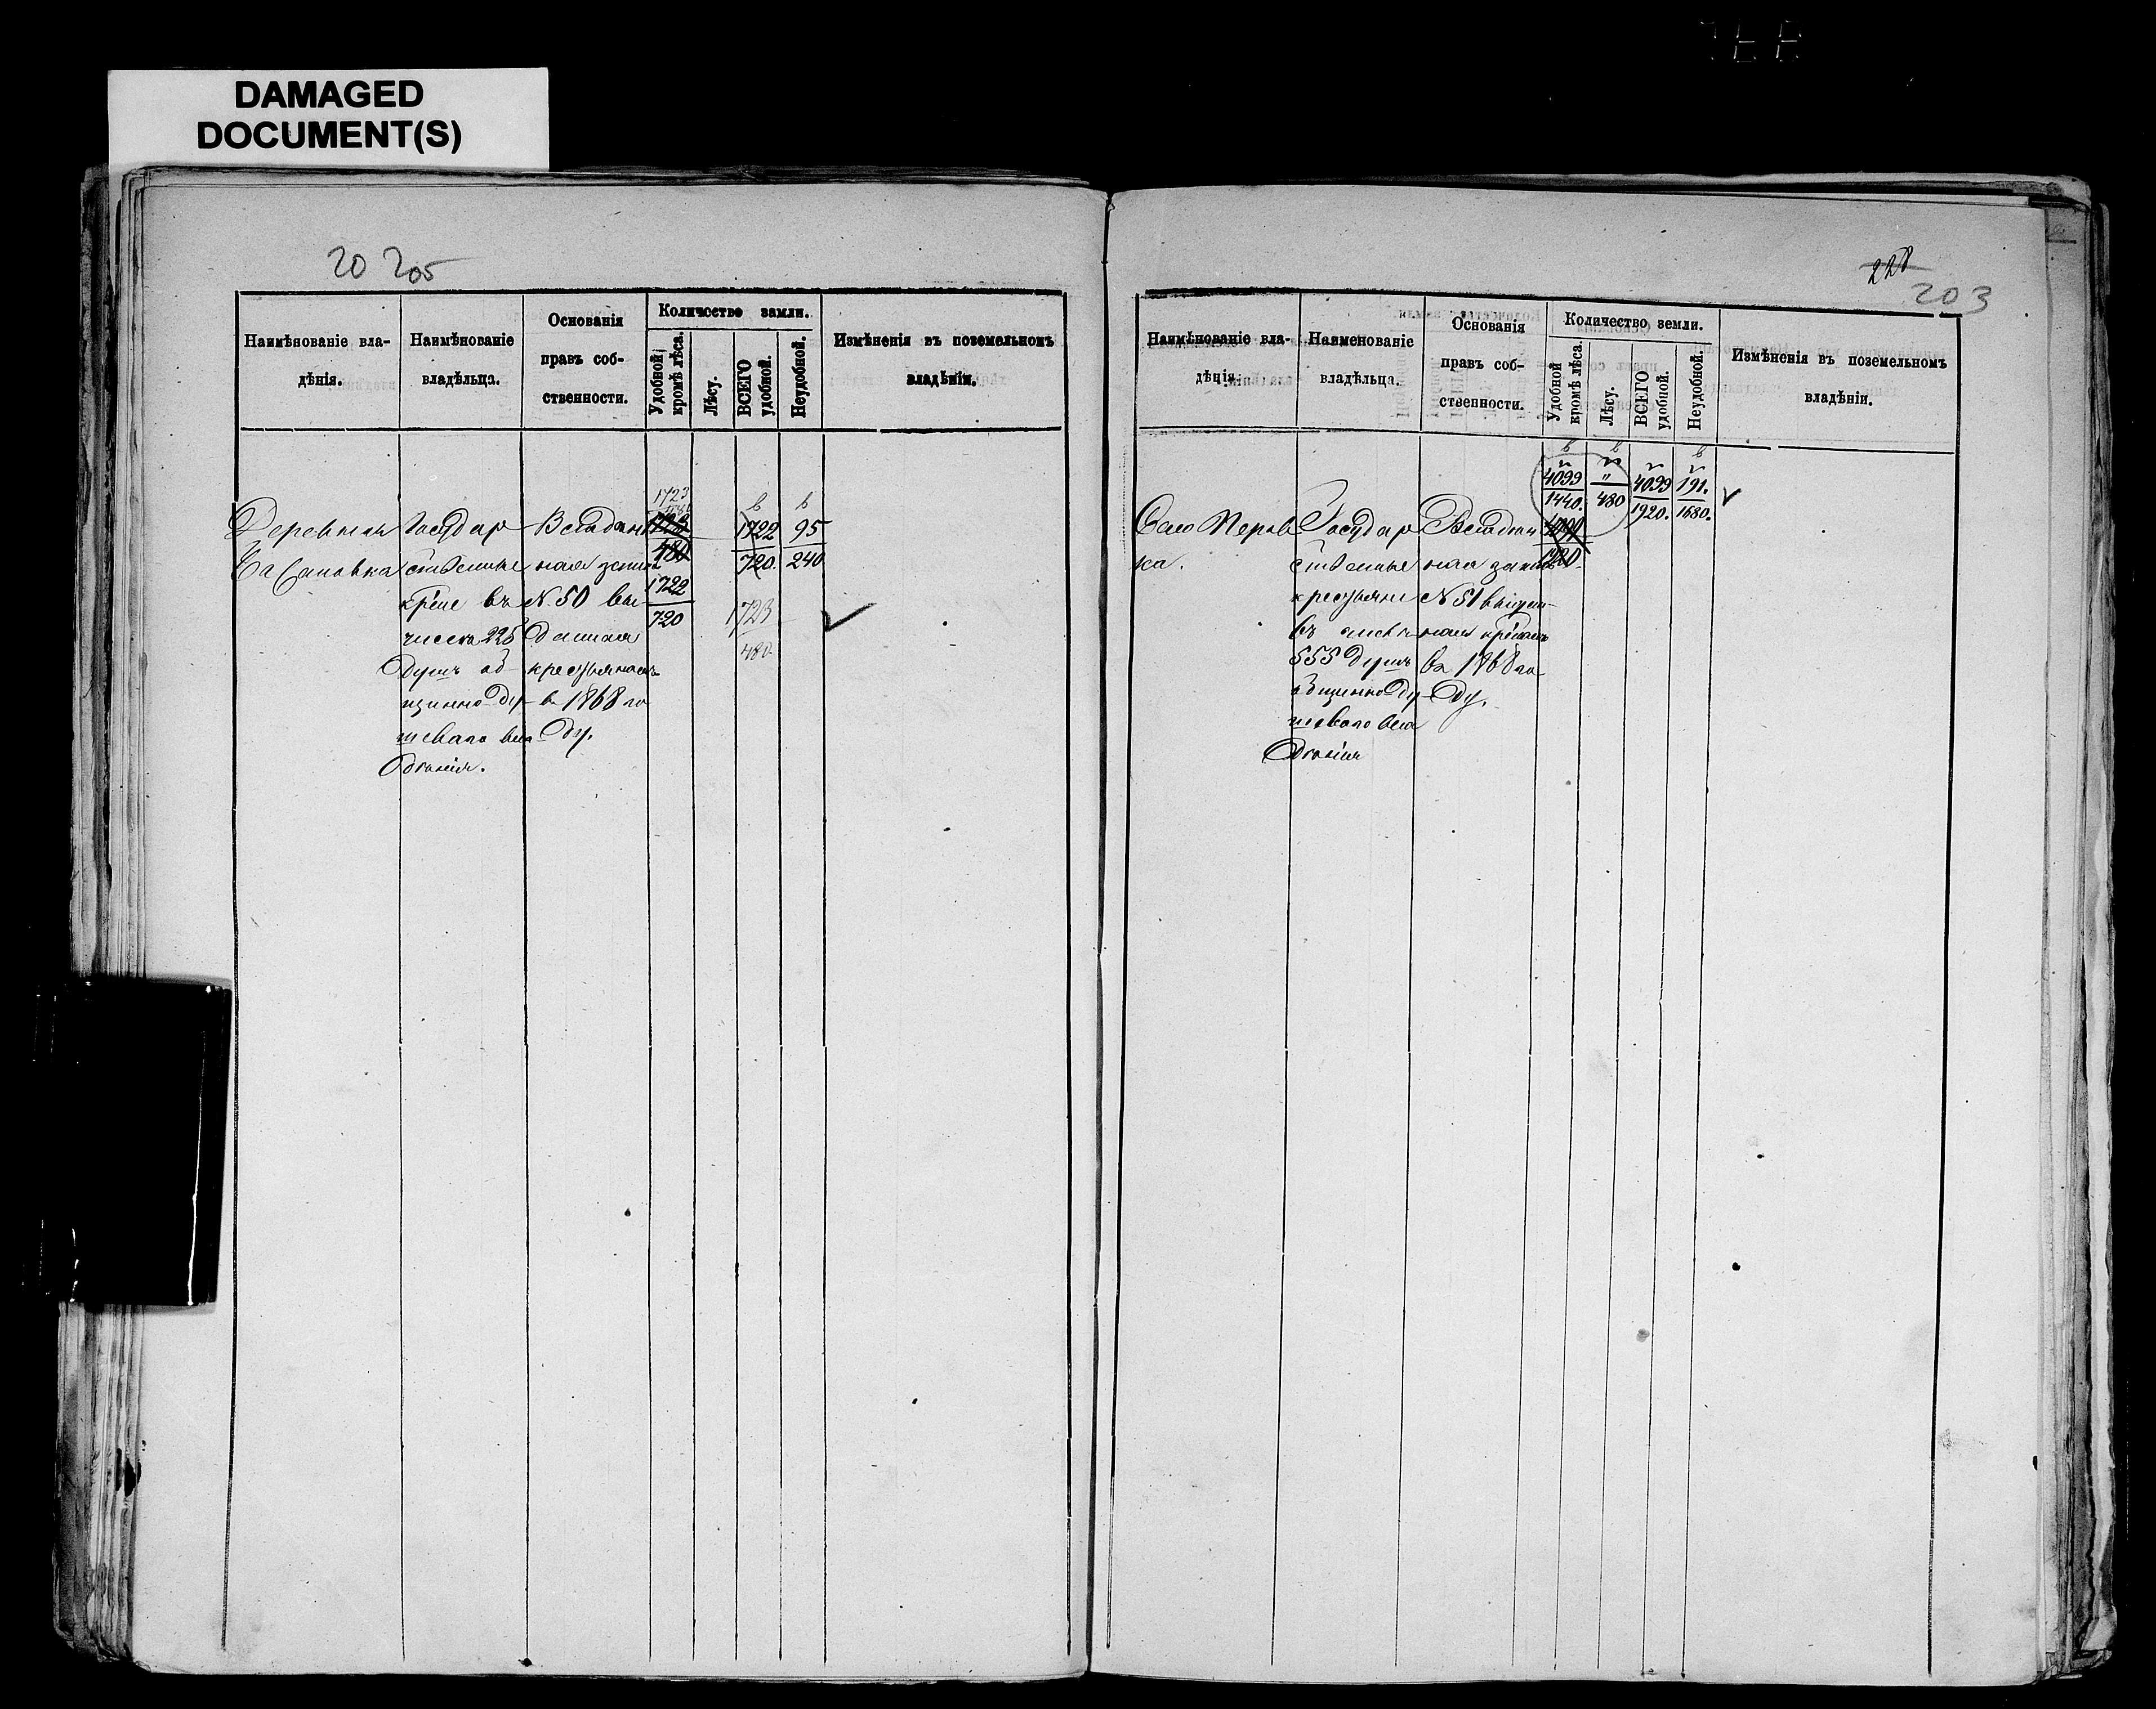 DAMAGED
DOCUMENT(S)
20 205
Наимѣнованіе вла-
дѣнія.
Наимѣнованіе
владѣльца.
Основанія
правъ соб-
ственности.
Количество земли.
Удобной
кромѣ лѣса.
Лѣсу.
ВСЕГО
удобной.
Неудобной.
Измѣненія въ поземельномъ
владѣніи.
Деревня
Государ
ственные
въ
числѣ 225
душъ об
щинно ду-
шеваго вла
дѣнія.
Владѣн
ная запись
№ 50 вы
данная
крестьянамъ
въ 1868 го
ду.
1723
480
1722
720
1722
720.
1723
480
95
240
228
203
Наимѣнованіе вла-
дѣнія.
Наименованіе
владѣльца.
Основанія
правъ соб-
ственности.
Количество земли.
Удобной
кромѣ лѣса.
Лѣсу.
ВСЕГО
удобной.
Неудобной.
Измѣненія въ поземельномъ
владѣніи.
Село
ка.
Государ
ственные
крестьяне
въ числѣ
555 душъ
общинно ду
шеваго вла
дѣнія
Владѣн
ная запись
№ 51 выдан-
ная
въ 1868 го
ду.
4099
1440.
"
480
4099
1920.
191.
1680.